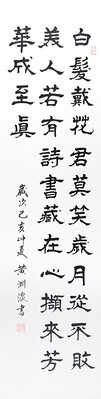 白髮戴花君莫笑歲月從不敗
美人若有詩書藏在心擷來芳
華成至眞
歲次己亥仲夏 黃淵澄書